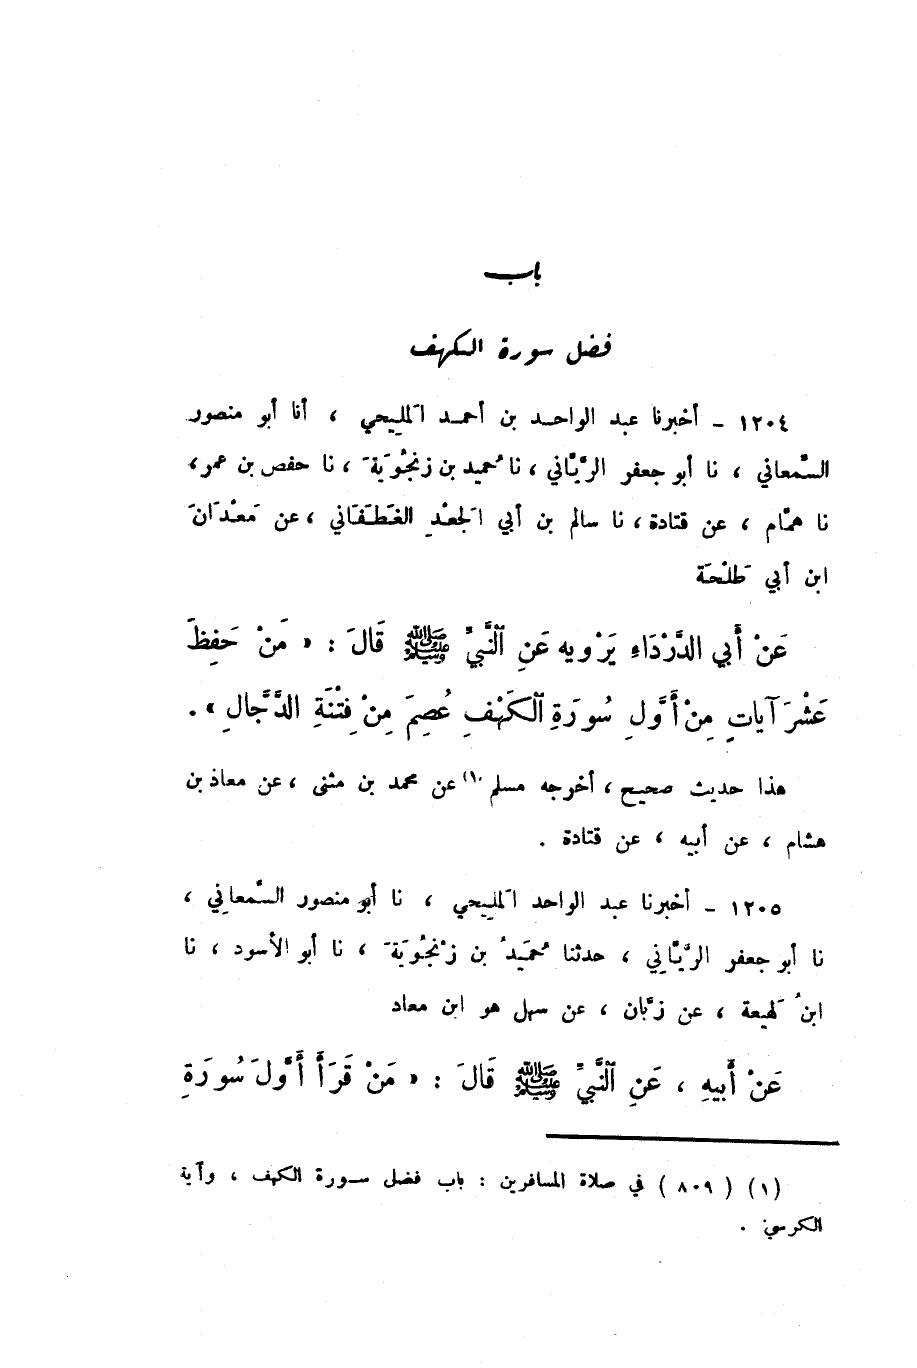 باب
فضل سورة الكهف
١٢٠٤ – أخبرنا عبد الواحد بن أحمد المَلِيحي ، أنا أبو منصور
السَّمعاني ، نا أبو جعفر الرَّيَّاني ، نا حُميد بن زنجُوَيَةَ ، نا حفص بن عمر ،
نا همَّام ، عن قتادة ، نا سالم بن أبي الجَعْدِ الغَطَفَاني ، عن مَعْدَانَ
ابن أبي طَلْحَة
عَنْ أَبي الدَّرْدَاءِ يَرْويه عَنِ النَّبيِّ ﷺ قَالَ : « مَنْ حَفِظَ
عَشْرَ آياتٍ مِنْ أَوَّلِ سُورَةِ الكَهْفِ عُصِمَ مِنْ فِتْنَةِ الدَّجَّالِ » .
هذا حديث صحيح ، أخرجه مسلم (١) عن محمد بن مثنى ، عن معاذ بن
هشام ، عن أبيه ، عن قتادة .
١٢٠٥ – أخبرنا عبد الواحد المَلِيحي ، نا أبو منصور السَّمعاني ،
نا أبو جعفر الرَّيَّاني ، حدثنا حُمَيدُ بن زَنْجُوَيَةَ ، نا أبو الأسود ، نا
ابنُ لَهيعة ، عن زبَّان ، عن سهل هو ابن معاد
عَنْ أَبيهِ ، عَنِ النَّبيِّ ﷺ قَالَ : « مَنْ قَرَأَ أَوَّلَ سُورَةِ
(١) ( ٨٠٩ ) في صلاة المسافرين : باب فضل سورة الكهف ، وآية
الكرسي .